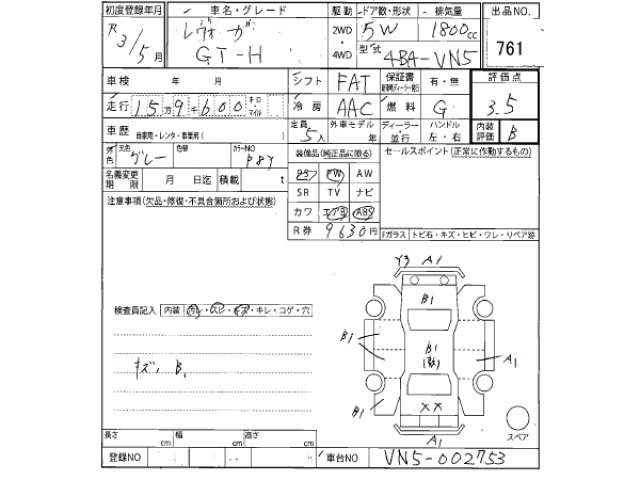 初度登録年月 車名・グレード 駆動 ドア数・形状 排気量 出品NO.
R3/5月 レヴォーグ 2WD 5W 1800cc 761
GT-H 4WD 型式 4BA-VN5
車検 年 月 シフト FAT 保証書 有・無 評価点
走行 15万9千600 キロ マイル 冷房 AAC 燃料 G 3.5
車歴 自家用・レンタ・事業用( ) 定員 5人 外車モデル 年 ディーラー 並行 ハンドル 左・右 内装評価 B
外色 元色 グレー 色替 カラーNO P8Y 装備品(純正品に限る) セールスポイント(正常に作動するもの)
名義変更期限 月 日迄 積載 t PS PW AW
SR TV ナビ
注意事項(欠品・修復・不具合箇所および状態) カワ エアB ABS
R券 9630円 Fガラス トビ石・キズ・ヒビ・ワレ・リペア跡
Y3 A1
B1
検査員記入 内装 汚れ・スレ・キズ・キレ・コゲ・穴
B1 B1 A1
キズ、B1
B1 XX
A1 スペア
長さ cm 幅 cm 高さ cm
登録NO 車台NO VN5-002753